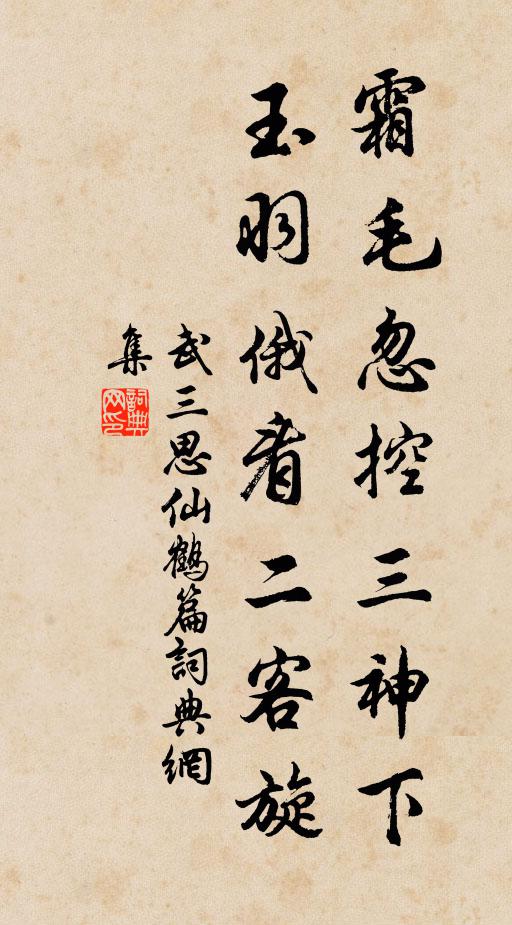 霜毛忽控三神下
玉羽俄看二客旋
武三思仙鶴篇詞典網
集
詞典
网印